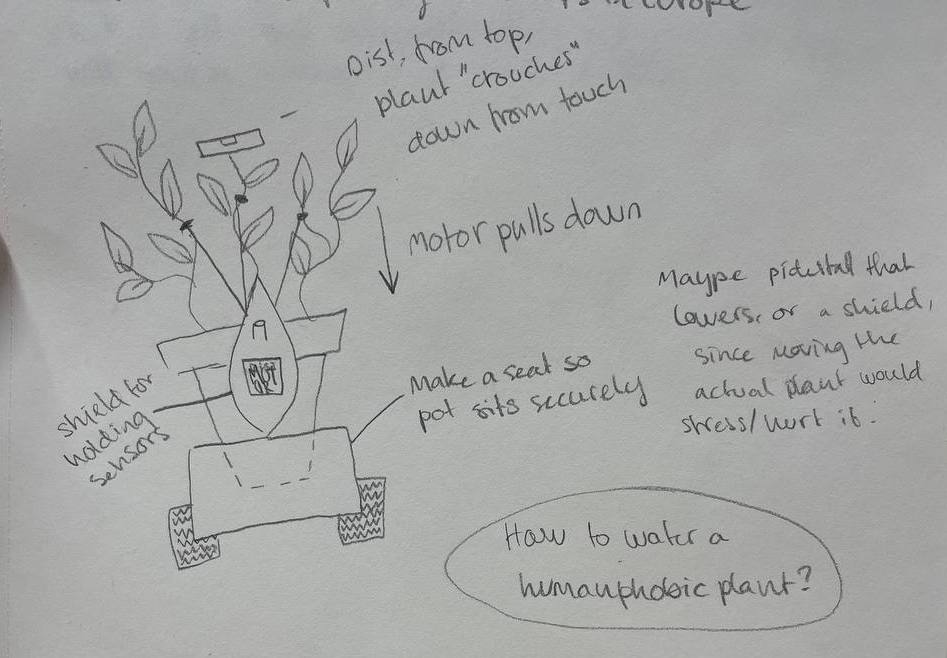 Europe
Dist. from top,
plant "crouches"
down from touch
Motor pulls down
Maype pidestall that
lowers, or a shield,
since moving the
actual plant would
stress/hurt it.
Make a seat so
pot sits securely
shield for
holding
sensors
How to water a
humanphobic plant?